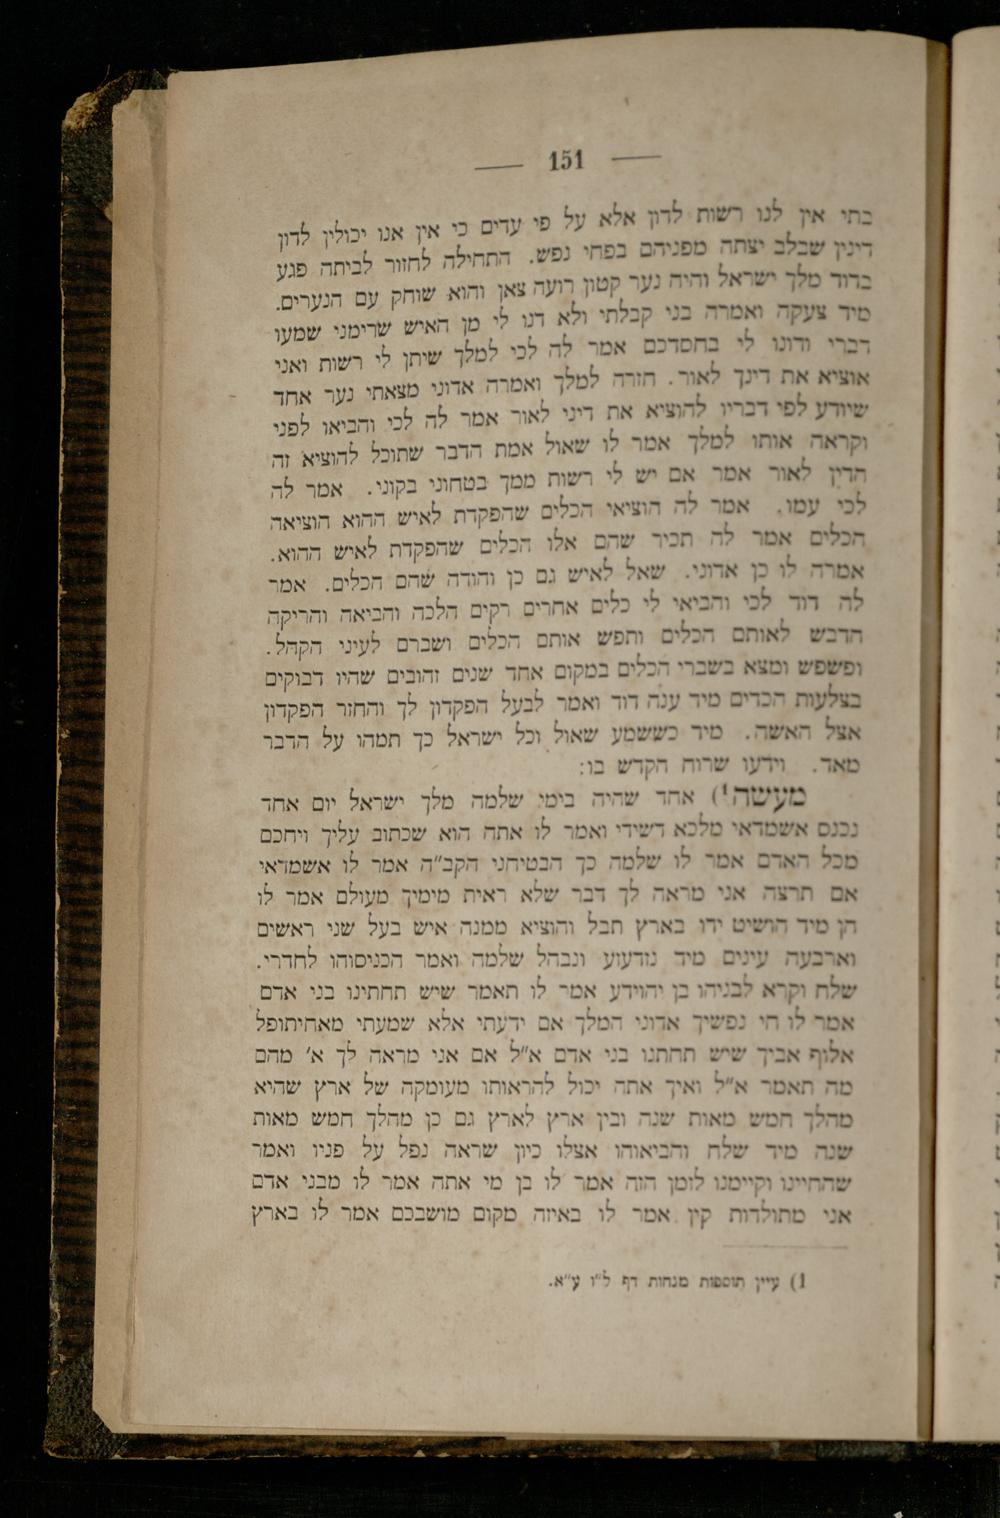 — 151 —
בתי אין לנו רשות לדון אלא על פי עדים כי אין אנו יכולין לדון
דינין שבלב יצתה מפניהם בפחי נפש. התחילה לחזור לביתה פגע
בדוד מלך ישראל והיה נער קטון רועה צאן והוא שוחק עם הנערים.
מיד צעקה ואמרה בני קבלתי ולא דנו לי מן האיש שרימני שמעו
דברי ודונו לי בחסדכם אמר לה לכי למלך שיתן לי רשות ואני
אוציא את דינך לאור. חזרה למלך ואמרה אדוני מצאתי נער אחד
שיודע לפי דבריו להוציא את דיני לאור אמר לה לכי והביאו לפני
וקראה אותו למלך אמר לו שאול אמת הדבר שתוכל להוציא זה
הדין לאור אמר אם יש לי רשות ממך בטחוני בקוני. אמר לה
לכי עמו. אמר לה הוציאי הכלים שהפקדת לאיש ההוא הוציאה
הכלים אמר לה תכיר שהם אלו הכלים שהפקדת לאיש ההוא.
אמרה לו כן אדוני. שאל לאיש גם כן והודה שהם הכלים. אמר
לה דוד לכי והביאי לי כלים אחרים רקים הלכה והביאה והריקה
הדבש לאותם הכלים ותפש אותם הכלים ושברם לעיני הקהל.
ופשפש ומצא בשברי הכלים במקום אחד שנים זהובים שהיו דבוקים
בצלעות הכדים מיד ענה דוד ואמר לבעל הפקדון לך והחזר הפקדון
אצל האשה. מיד כששמע שאול וכל ישראל כך תמהו על הדבר
מאד. וידעו שרוח הקדש בו:
מעשה1) אחד שהיה בימי שלמה מלך ישראל יום אחד
נכנס אשמדאי מלכא דשידי ואמר לו אתה הוא שכתוב עליך ויחכם
מכל האדם אמר לו שלמה כך הבטיחני הקב"ה אמר לו אשמדאי
אם תרצה אני מראה לך דבר שלא ראית מימיך מעולם אמר לו
הן מיד הושיט ידו בארץ תבל והוציא ממנה איש בעל שני ראשים
וארבעה עינים מיד נזדעזע ונבהל שלמה ואמר הכניסוהו לחדרי.
שלח וקרא לבניהו בן יהוידע אמר לו תאמר שיש תחתינו בני אדם
אמר לו חי נפשיך אדוני המלך אם ידעתי אלא שמעתי מאחיתופל
אלוף אביך שיש תחתנו בני אדם א"ל אם אני מראה לך א' מהם
מה תאמר א"ל ואיך אתה יכול להראותו מעומקה של ארץ שהיא
מהלך חמש מאות שנה ובין ארץ לארץ גם כן מהלך חמש מאות
שנה מיד שלח והביאוהו אצלו כיון שראה נפל על פניו ואמר
שהחיינו וקיימנו לזמן הזה אמר לו בן מי אתה אמר לו מבני אדם
אני מתולדות קין אמר לו באיזה מקום מושבכם אמר לו בארץ
1) עיין תוספות מנחות דף ל"ו ע"א.